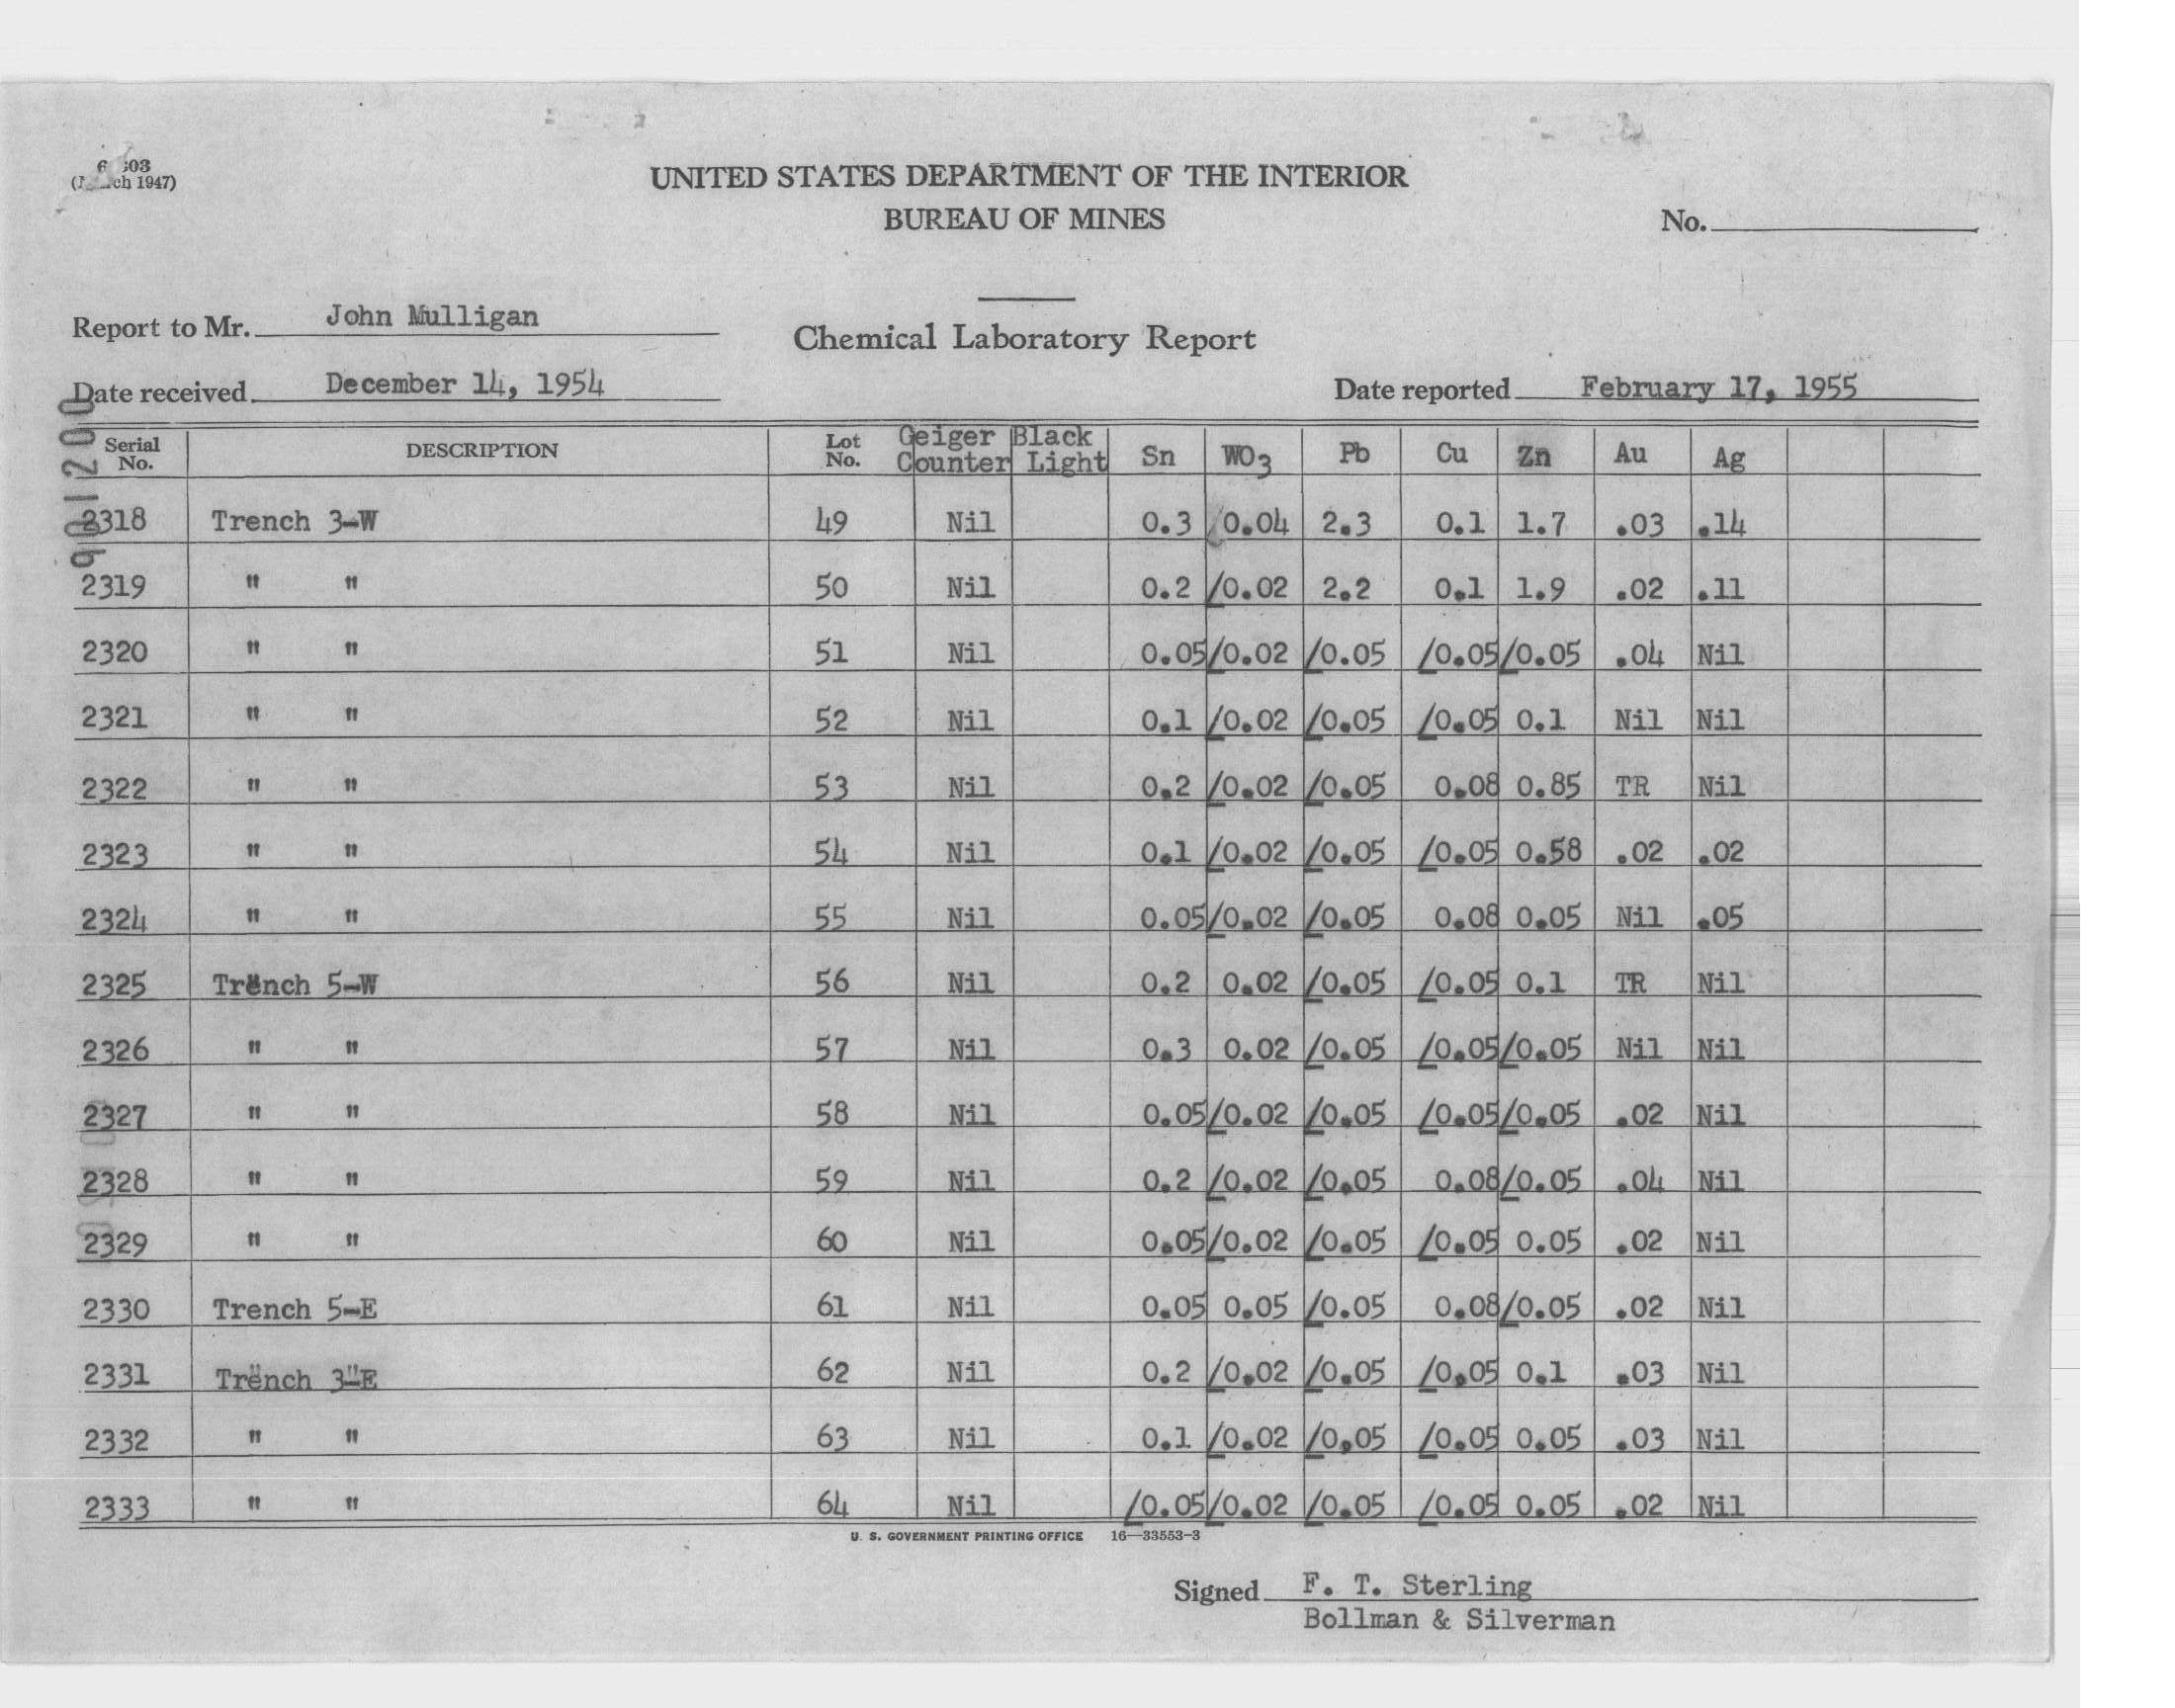 UNITED STATES DEPARTMENT OF THE INTERIOR
BUREAU OF MINES
No.
(March 1947)
Report to Mr. John Mulligan
Chemical Laboratory Report
Date received December 14, 1954
Date reported February 17, 1955
901200
Serial No. DESCRIPTION Lot No. Geiger Counter Black Light Sn WO3 Pb Cu Zn Au Ag
2318 Trench 3-W 49 Nil 0.3 0.04 2.3 0.1 1.7 .03 .14
2319 " " 50 Nil 0.2 /0.02 2.2 0.1 1.9 .02 .11
2320 " " 51 Nil 0.05 /0.02 /0.05 /0.05 /0.05 .04 Nil
2321 " " 52 Nil 0.1 /0.02 /0.05 /0.05 0.1 Nil Nil
2322 " " 53 Nil 0.2 /0.02 /0.05 0.08 0.85 TR Nil
2323 " " 54 Nil 0.1 /0.02 /0.05 /0.05 0.58 .02 .02
2324 " " 55 Nil 0.05 /0.02 /0.05 0.08 0.05 Nil .05
2325 Trench 5-W 56 Nil 0.2 0.02 /0.05 /0.05 0.1 TR Nil
2326 " " 57 Nil 0.3 0.02 /0.05 /0.05 /0.05 Nil Nil
2327 " " 58 Nil 0.05 /0.02 /0.05 /0.05 /0.05 .02 Nil
2328 " " 59 Nil 0.2 /0.02 /0.05 0.08 /0.05 .04 Nil
2329 " " 60 Nil 0.05 /0.02 /0.05 /0.05 0.05 .02 Nil
2330 Trench 5-E 61 Nil 0.05 0.05 /0.05 0.08 /0.05 .02 Nil
2331 Trench 3-E 62 Nil 0.2 /0.02 /0.05 /0.05 0.1 .03 Nil
2332 " " 63 Nil 0.1 /0.02 /0.05 /0.05 0.05 .03 Nil
2333 " " 64 Nil /0.05 /0.02 /0.05 /0.05 0.05 .02 Nil
U. S. GOVERNMENT PRINTING OFFICE 16—33553-3
Signed F. T. Sterling
Bollman & Silverman